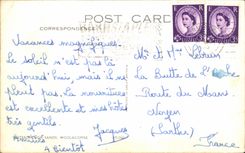 POST CARD
CORRESPONDENCE
Vacances magnifiques.
Le soleil n'est pas là
aujourd'hui, mais il ne
pleut pas. La nourriture
est excellente et mes hôtes
très gentils.
Jacques
A bientôt
Mr et Mme
La Butte de
Route du Mans
(Sarthe)
France